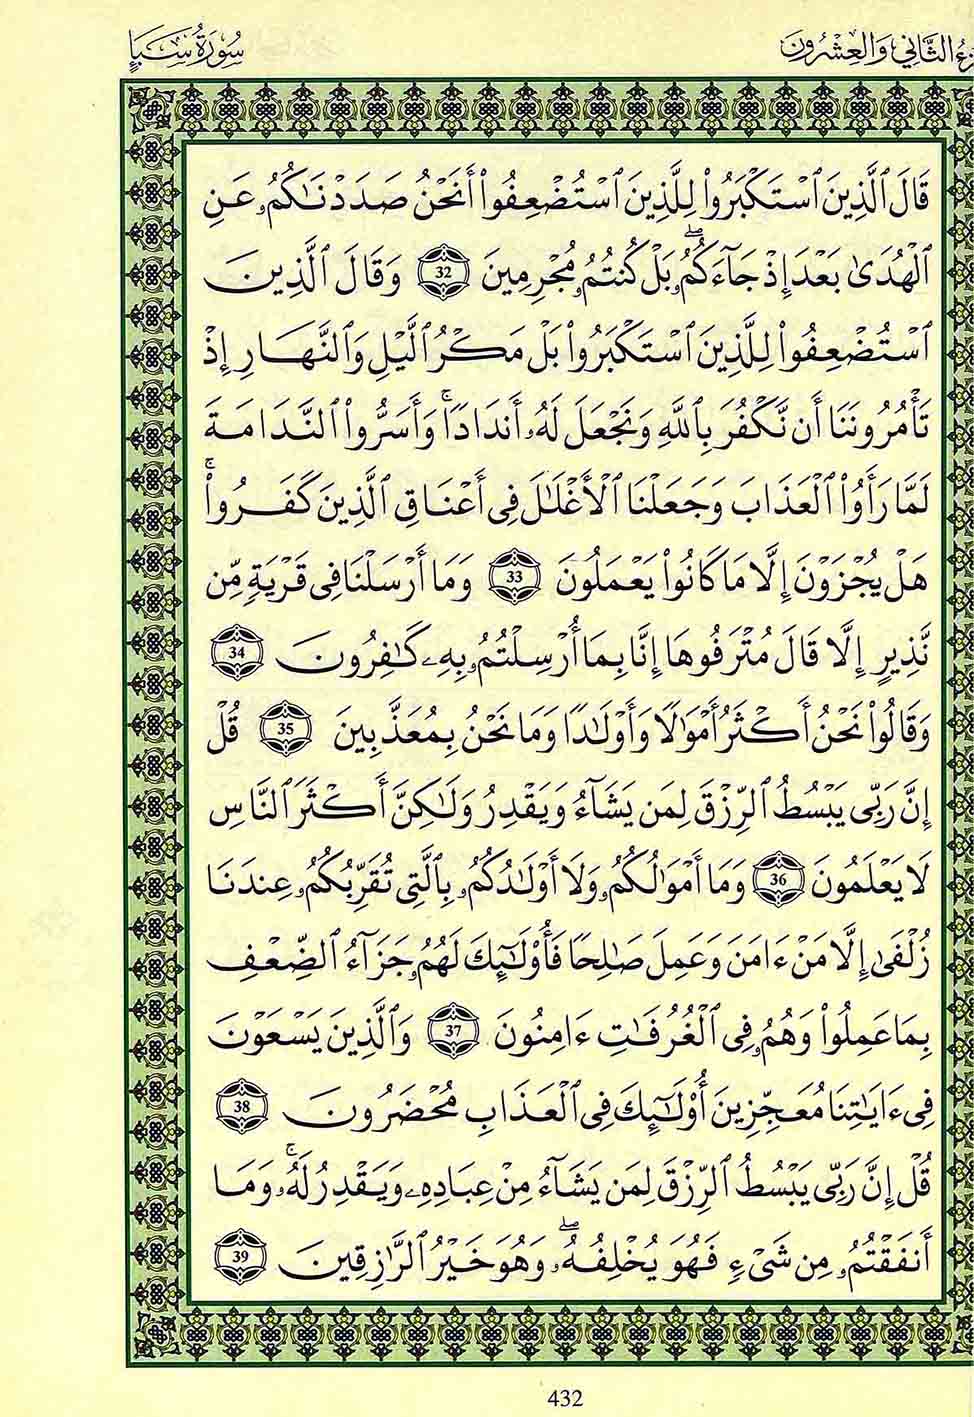 زء الثَّانِي وَالعِشْرُونَ
سُورَةُ سَبَإٍ
قَالَ ٱلَّذِينَ ٱسْتَكْبَرُوا۟ لِلَّذِينَ ٱسْتُضْعِفُوٓا۟ أَنَحْنُ صَدَدْنَـٰكُمُۥ عَنِ
ٱلْهُدَىٰ بَعْدَ إِذْ جَآءَكُمُۥۖ بَلْ كُنتُمُۥ مُجْرِمِينَ 32 وَقَالَ ٱلَّذِينَ
ٱسْتُضْعِفُوا۟ لِلَّذِينَ ٱسْتَكْبَرُوا۟ بَلْ مَكْرُ ٱلَّيْلِ وَٱلنَّهَارِ إِذْ
تَأْمُرُونَنَا أَن نَّكْفُرَ بِٱللَّهِ وَنَجْعَلَ لَهُۥ أَندَادًاۚ وَأَسَرُّوا۟ ٱلنَّدَامَةَ
لَمَّا رَأَوُا۟ ٱلْعَذَابَ وَجَعَلْنَا ٱلْأَغْلَـٰلَ فِى أَعْنَاقِ ٱلَّذِينَ كَفَرُوا۟ۚ
هَلْ يُجْزَوْنَ إِلَّا مَا كَانُوا۟ يَعْمَلُونَ 33 وَمَا أَرْسَلْنَا فِى قَرْيَةٍ مِّن
نَّذِيرٍ إِلَّا قَالَ مُتْرَفُوهَا إِنَّا بِمَا أُرْسِلْتُمُۥ بِهِۦ كَـٰفِرُونَ 34
وَقَالُوا۟ نَحْنُ أَكْثَرُ أَمْوَٰلًا وَأَوْلَـٰدًا وَمَا نَحْنُ بِمُعَذَّبِينَ 35 قُلْ
إِنَّ رَبِّى يَبْسُطُ ٱلرِّزْقَ لِمَن يَشَآءُ وَيَقْدِرُ وَلَـٰكِنَّ أَكْثَرَ ٱلنَّاسِ
لَا يَعْلَمُونَ 36 وَمَا أَمْوَٰلُكُمُۥ وَلَا أَوْلَـٰدُكُمُۥ بِٱلَّتِى تُقَرِّبُكُمُۥ عِندَنَا
زُلْفَىٰ إِلَّا مَنْ ءَامَنَ وَعَمِلَ صَـٰلِحًا فَأُو۟لَـٰٓئِكَ لَهُمُۥ جَزَآءُ ٱلضِّعْفِ
بِمَا عَمِلُوا۟ وَهُمُۥ فِى ٱلْغُرُفَـٰتِ ءَامِنُونَ 37 وَٱلَّذِينَ يَسْعَوْنَ
فِى ءَايَـٰتِنَا مُعَجِّزِينَ أُو۟لَـٰٓئِكَ فِى ٱلْعَذَابِ مُحْضَرُونَ 38
قُلْ إِنَّ رَبِّى يَبْسُطُ ٱلرِّزْقَ لِمَن يَشَآءُ مِنْ عِبَادِهِۦ وَيَقْدِرُ لَهُۥۚ وَمَا
أَنفَقْتُمُۥ مِن شَىْءٍ فَهُوَ يُخْلِفُهُۥۖ وَهُوَ خَيْرُ ٱلرَّٰزِقِينَ 39
432